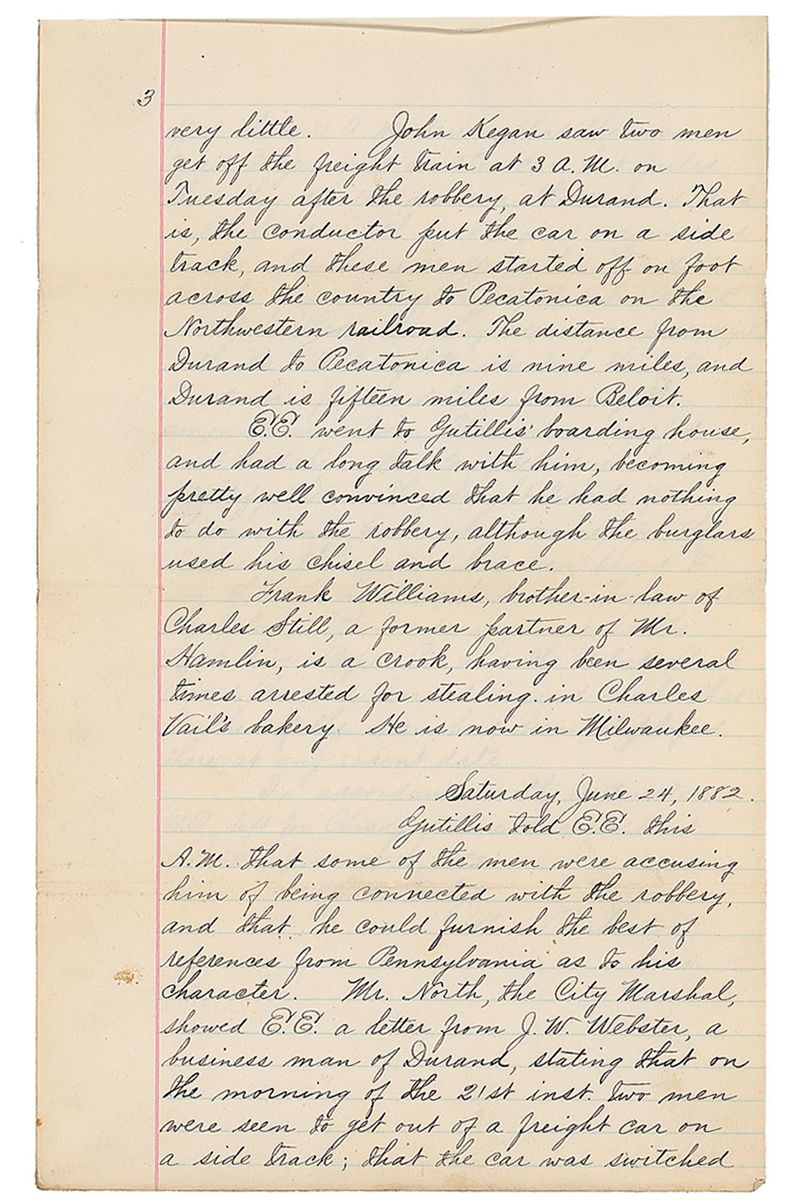 3
very little. John Kegan saw two men
get off the freight train at 3 A.M. on
Tuesday after the robbery, at Durand. That
is, the conductor put the car on a side
track, and these men started off on foot
across the country to Pecatonica on the
Northwestern railroad. The distance from
Durand to Pecatonica is nine miles, and
Durand is fifteen miles from Beloit.
E.E. went to Gutillis' boarding house,
and had a long talk with him, becoming
pretty well convinced that he had nothing
to do with the robbery, although the burglars
used his chisel and brace.
Frank Williams, brother-in-law of
Charles Still, a former partner of Mr.
Hamlin, is a crook, having been several
times arrested for stealing in Charles
Vail's bakery. He is now in Milwaukee.
Saturday, June 24, 1882.
Gutillis told E.E. this
A.M. that some of the men were accusing
him of being connected with the robbery,
and that he could furnish the best of
references from Pennsylvania as to his
character. Mr. North, the City Marshal,
showed E.E. a letter from J.W. Webster, a
business man of Durand, stating that on
the morning of the 21st inst. two men
were seen to get out of a freight car on
a side track; that the car was switched